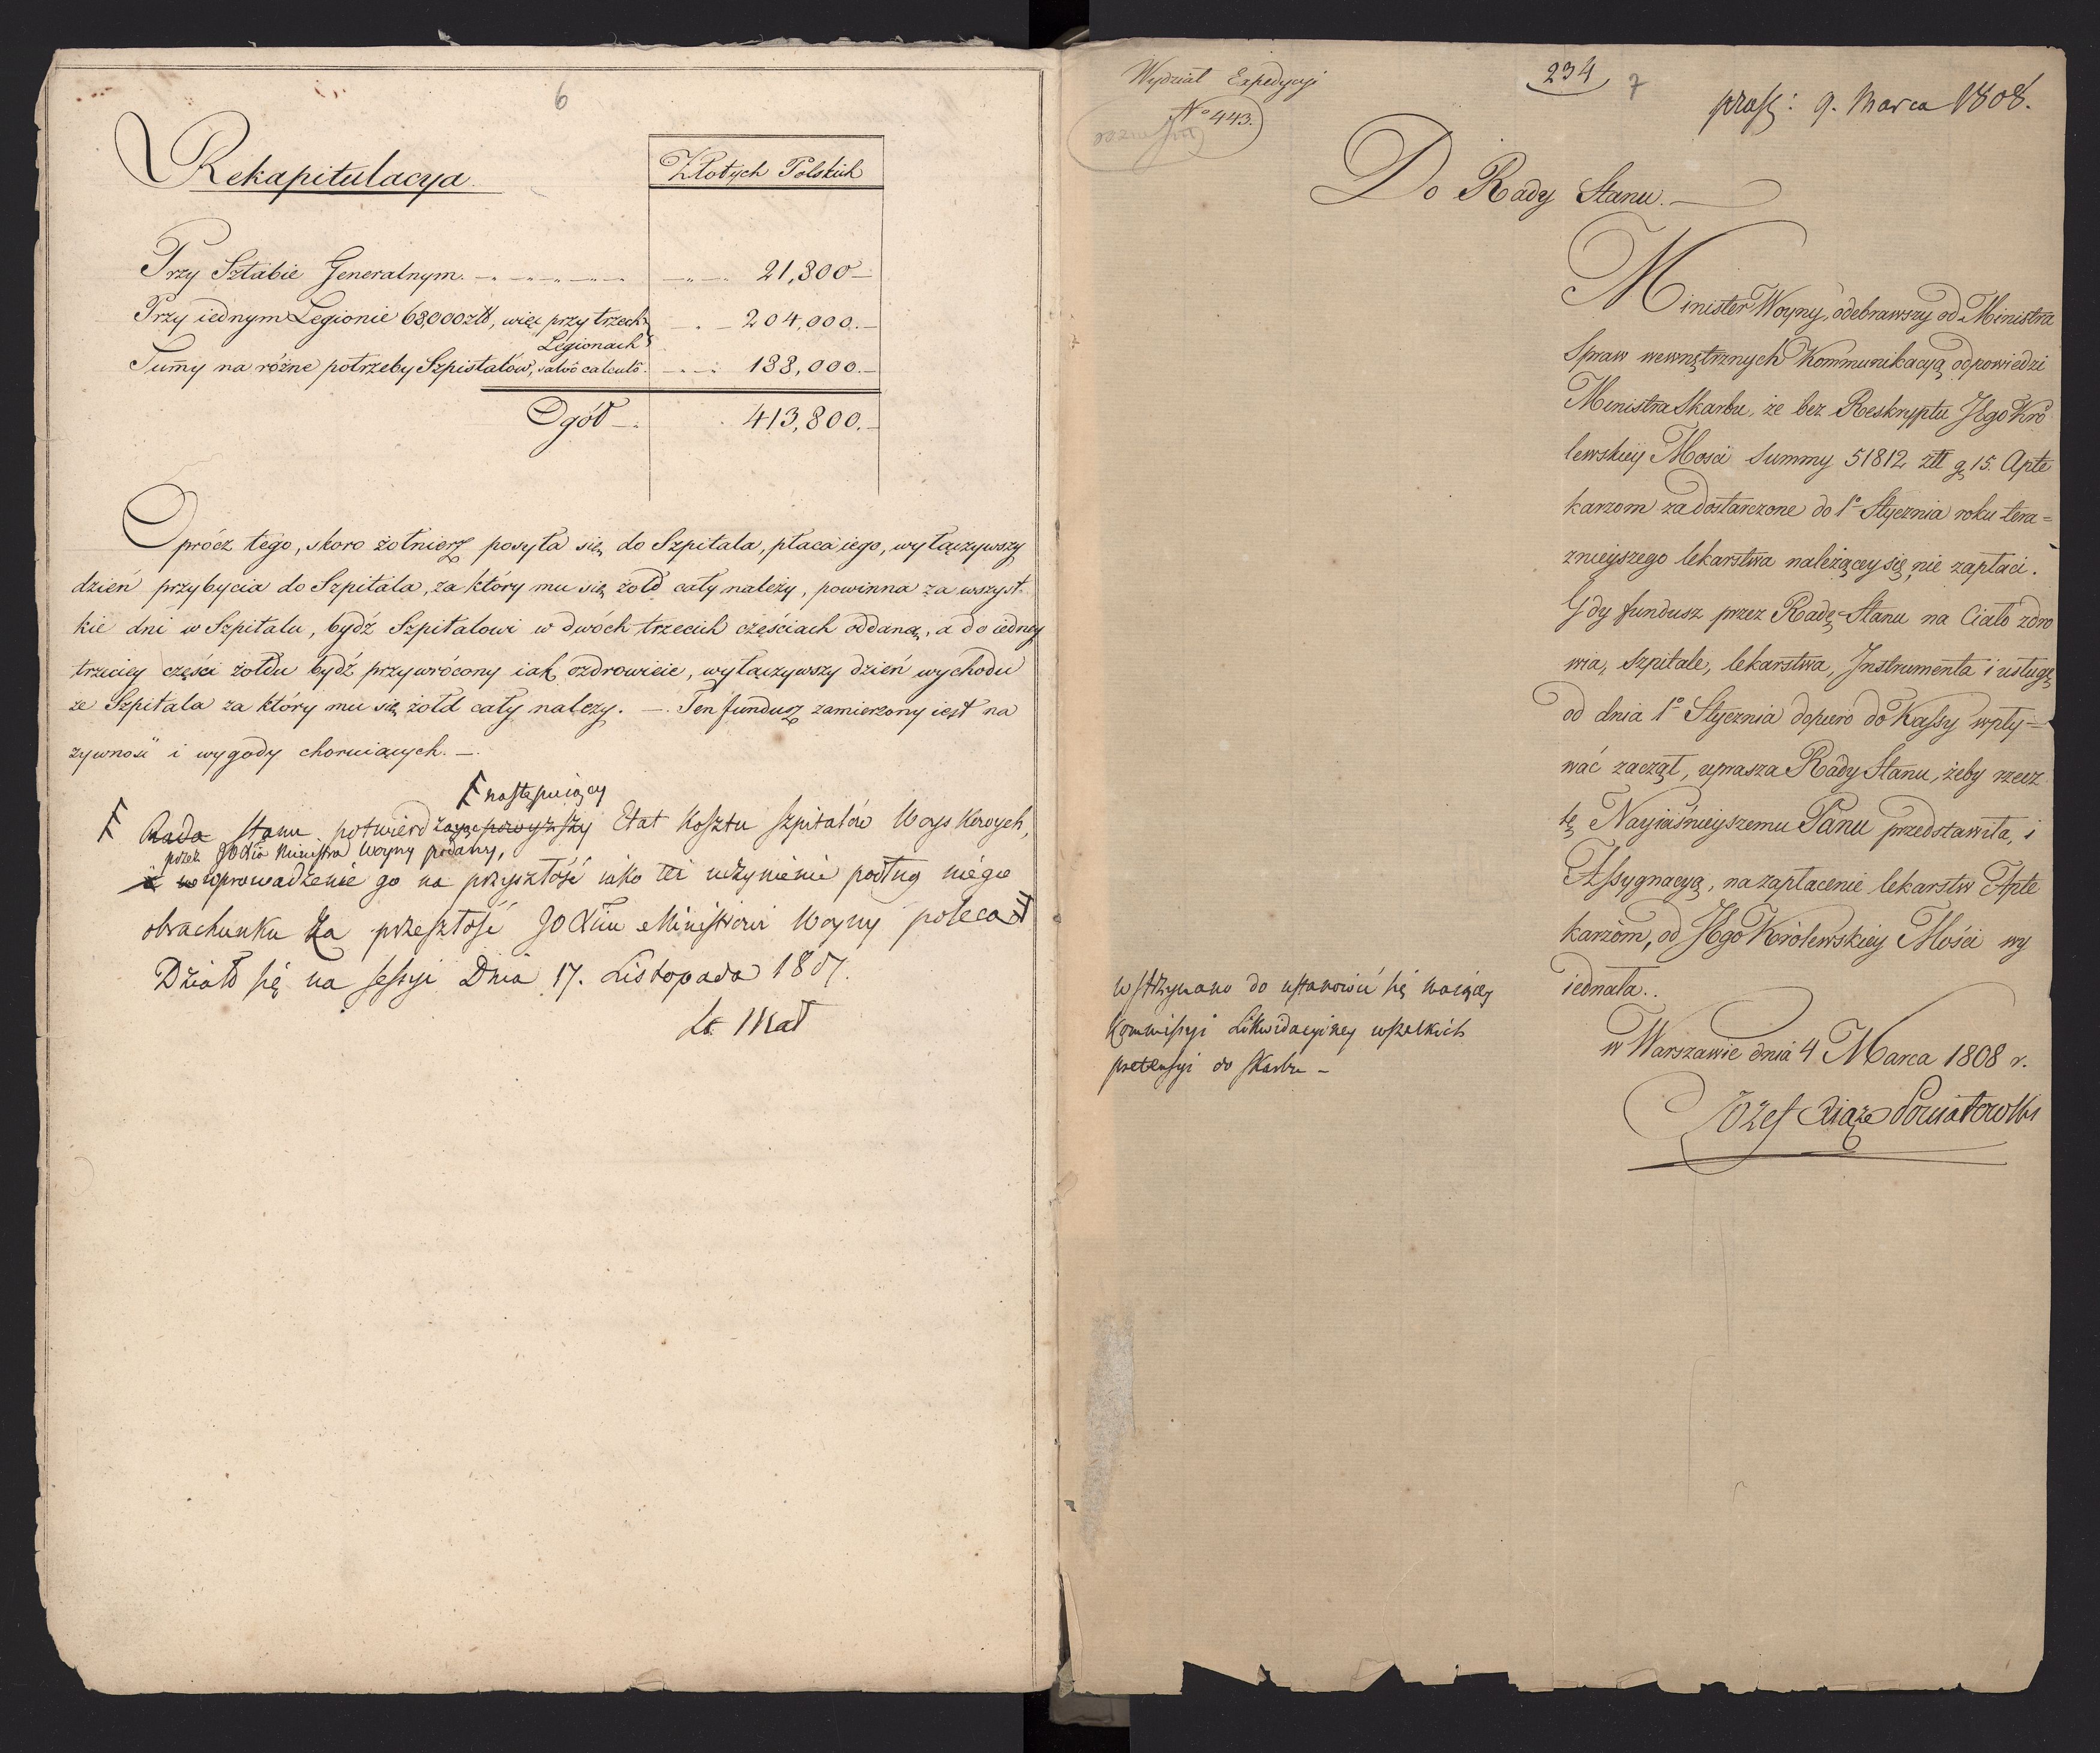 6
Rekapitulacya.
Złotych Polskich
Przy Sztabie Generalnym. 21,800
Przy iednym Legionie 68,000 złł, więc przy trzech 204,000.
Legionach
Sum̄y na różne potrzeby Szpistalów, salvô calculô. 188,000.
Ogół 413,800.
Oprócz tego, skoro żołnierz posyła się do Szpitala, płaca iego, wyłączywszy
dzień przybycia do Szpitala, za który mu się żołd cały należy, powinna za wszyst
kie dni w Szpitalu, bydź Szpitalowi w dwóch trzecich częściach oddaną, a do iedney
trzeciey części żołdu bydź przywrócony iak ozdrowieie, wyłączywszy dzień wychodu
ze Szpitala za który mu się żołd cały należy. — Ten fundusz zamierzony iest na
żywność i wygody choruiących. —
następuiący
Rada Stanu potwierdzając powyższy Etat Kosztu szpitalów Woyskowych,
przez JO Xia Ministra Woyny podany,
a wprowadzenie go na przyszłość iako też uczynienie podług niego
obrachunku za przeszłość JO Xiu Ministrowi Woyny poleca
Działo się na sessyi Dnia 17. Listopada 1807.
St. Mał
Wydział Expedycyi
No 443.
234
7
præs: 9. Marca 1808.
Do Rady Stanu. —
Minister Woyny, odebrawszy od Ministra
Spraw wewnętrznych Kommunikacyą odpowiedzi
Ministra Skarbu, że bez Reskryptu Jego Kró
lewskiey Mości Summy 51812 złł g 15. Apte
karzom za dostarczone do 1o Stycznia roku tera=
znieyszego lekarstwa należącey się, nie zapłaci.
Gdy fundusz przez Radę Stanu na Ciało zdro
wia, szpitale, lekarstwa, Jnstrumenta i usługę
od dnia 1o Stycznia dopiero do Kassy wpły=
wać zaczął, uprasza Rady Stanu, żeby rzecz
tę Nayiaśnieyszemu Panu przedstawiła, i
Assygnacyą, na zapłacenie lekarstw Apte
karzom, od Jego Królewskiey Mości wy
iednała..
w Warszawie dnia 4 Marca 1808 r.
Jozef Xiąże Poniatowski
wstrzymano do ustanowić się maiącey
Kommissyi Likwidacyiney wszelkich
pretensyi do Skarbu —